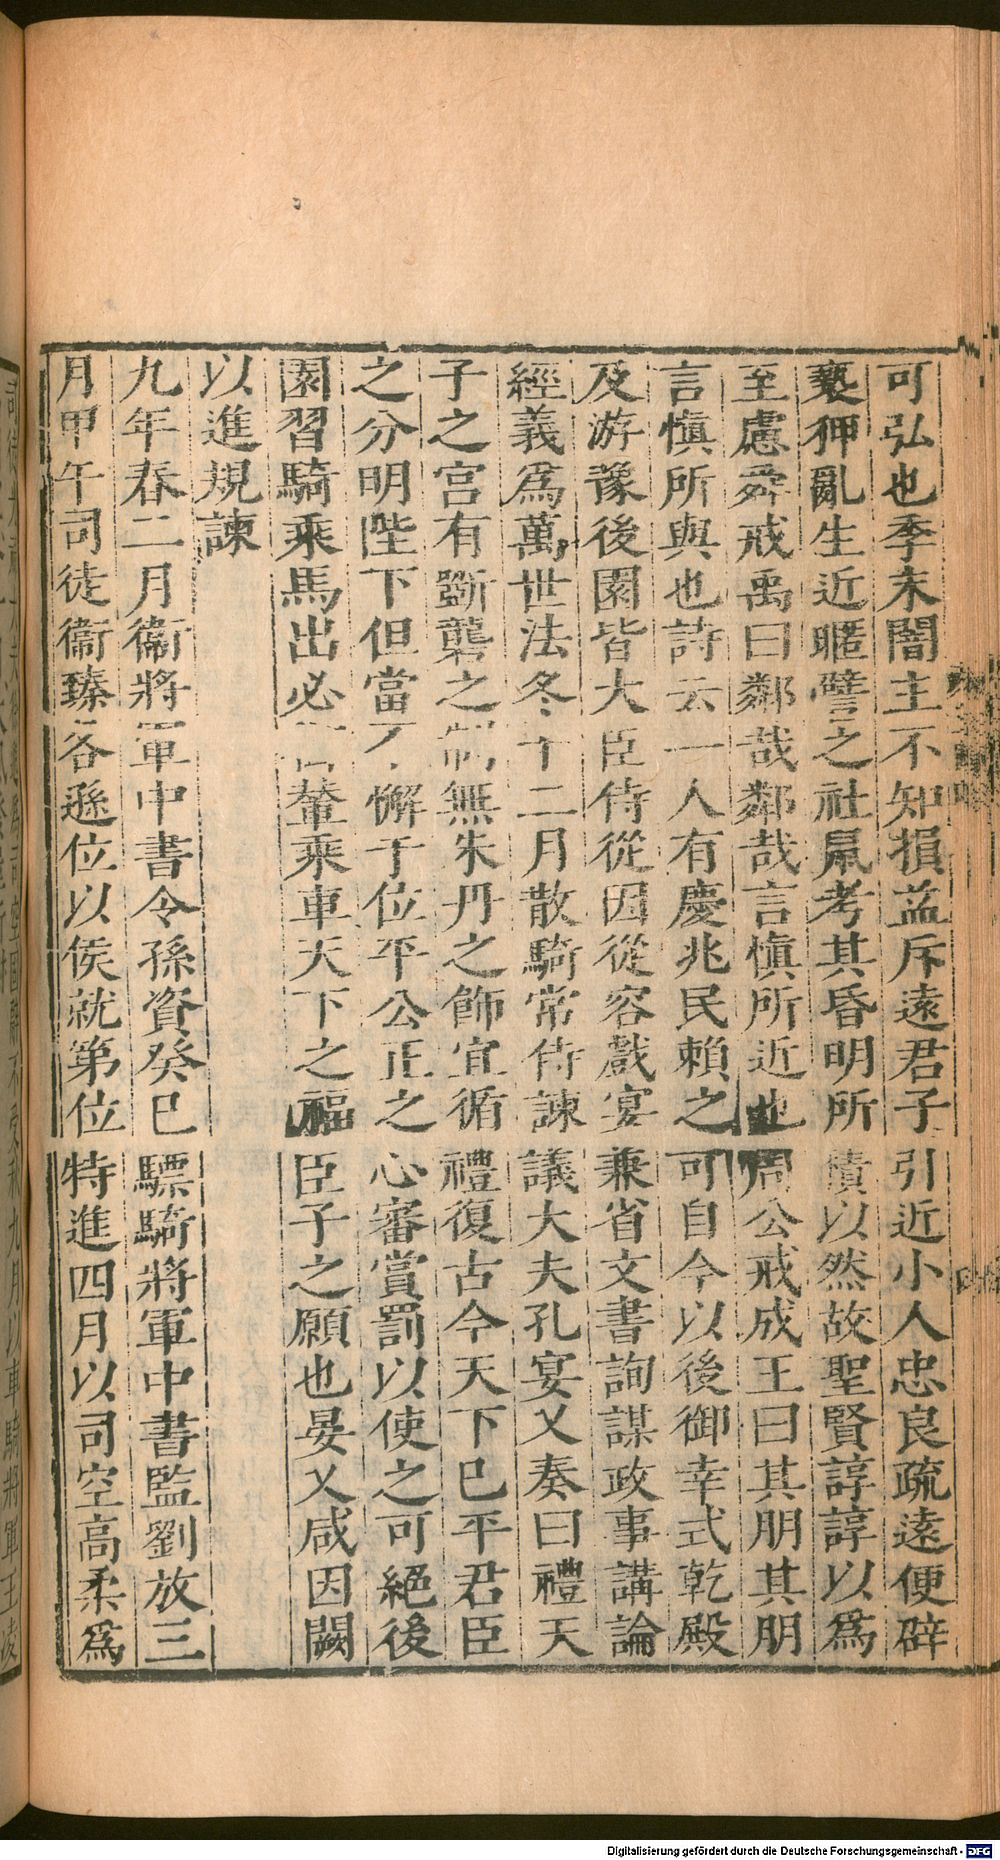 可弘也季末闇主不知損益斥遠君子引近小人忠良疏遠便辟
褻狎亂生近暱譬之社鼠考其昏明所積以然故聖賢諄諄以爲
至慮舜戒禹曰鄰哉鄰哉言慎所近也周公戒成王曰其朋其朋
言慎所與也詩云一人有慶兆民賴之可自今以後御幸式乾殿
及游豫後園皆大臣侍從因從容戲宴兼省文書詢謀政事講論
經義爲萬世法冬十二月散騎常侍諫議大夫孔宴乂奏曰禮天
子之宮有斵礱之制無朱丹之飾宜循禮復古今天下已平君臣
之分明陛下但當不懈于位平公正之心審賞罰以使之可絕後
園習騎乘馬出必輦乘車天下之福臣子之願也晏乂咸因闕
以進規諫
九年春二月衞將軍中書令孫資癸巳驃騎將軍中書監劉放三
月甲午司徒衞臻各遜位以侯就第位特進四月以司空高柔爲
Digitalisierung gefördert durch die Deutsche Forschungsgemeinschaft - DFG